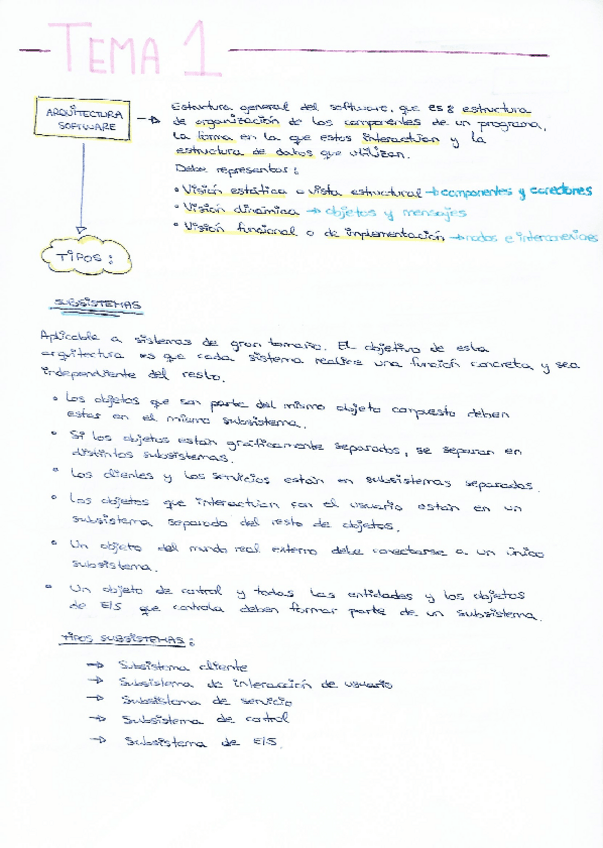 TEMA 1
ARQUITECTURA
SOFTWARE
Estructura general del software, que es la estructura
de organización de los componentes de un programa,
la forma en la que estos interactúan y la
estructura de datos que utilizan.
Debe representar:
• Visión estática o vista estructural → componentes y conectores
• Visión dinámica → objetos y mensajes
• Visión funcional o de implementación → nodos e interconexiones
TIPOS:
SUBSISTEMAS
Aplicable a sistemas de gran tamaño. El objetivo de esta
arquitectura es que cada sistema realice una función concreta y sea
independiente del resto.
• Los objetos que son parte del mismo objeto compuesto deben
estar en el mismo subsistema.
• Si los objetos están gráficamente separados, se separan en
distintos subsistemas.
• Los clientes y los servicios están en subsistemas separados.
• Los objetos que interactúan con el usuario están en un
subsistema separado del resto de objetos.
• Un objeto del mundo real externo debe conectarse a un único
subsistema.
• Un objeto de control y todas las entidades y los objetos
de E/S que controla deben formar parte de un subsistema.
TIPOS SUBSISTEMAS:
→ Subsistema cliente
→ Subsistema de interacción de usuario
→ Subsistema de servicio
→ Subsistema de control
→ Subsistema de E/S.